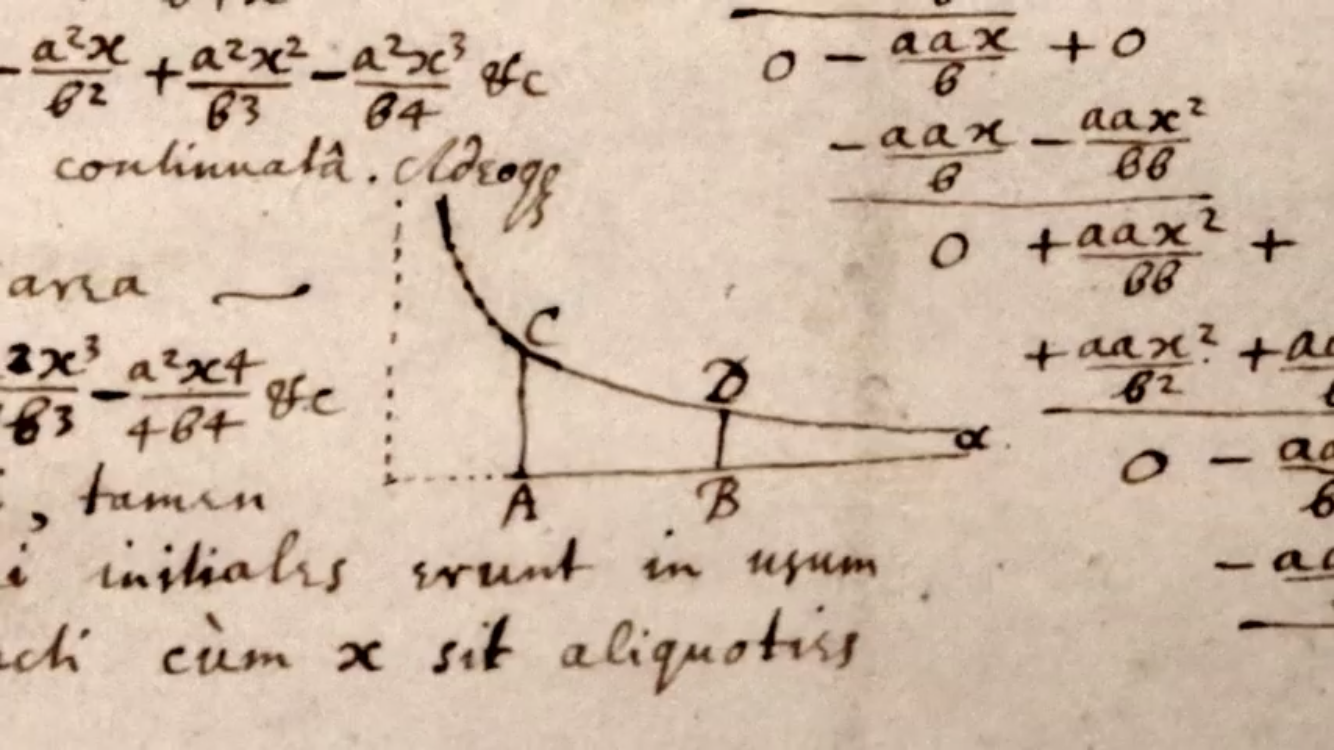 - a²x/b² + a²x²/b3 - a²x³/b4 &c
continuatâ. Adeoqȝ
area
2x³/b3 - a²x4/4b4 &c
, tamen
i initiales erunt in usum
cùm x sit aliquoties
C
D
α
A
B
0 - aax/b + 0
- aax/b - aax²/bb
0 + aax²/bb +
+ aax²/b² + aa
0 - aa
- aa